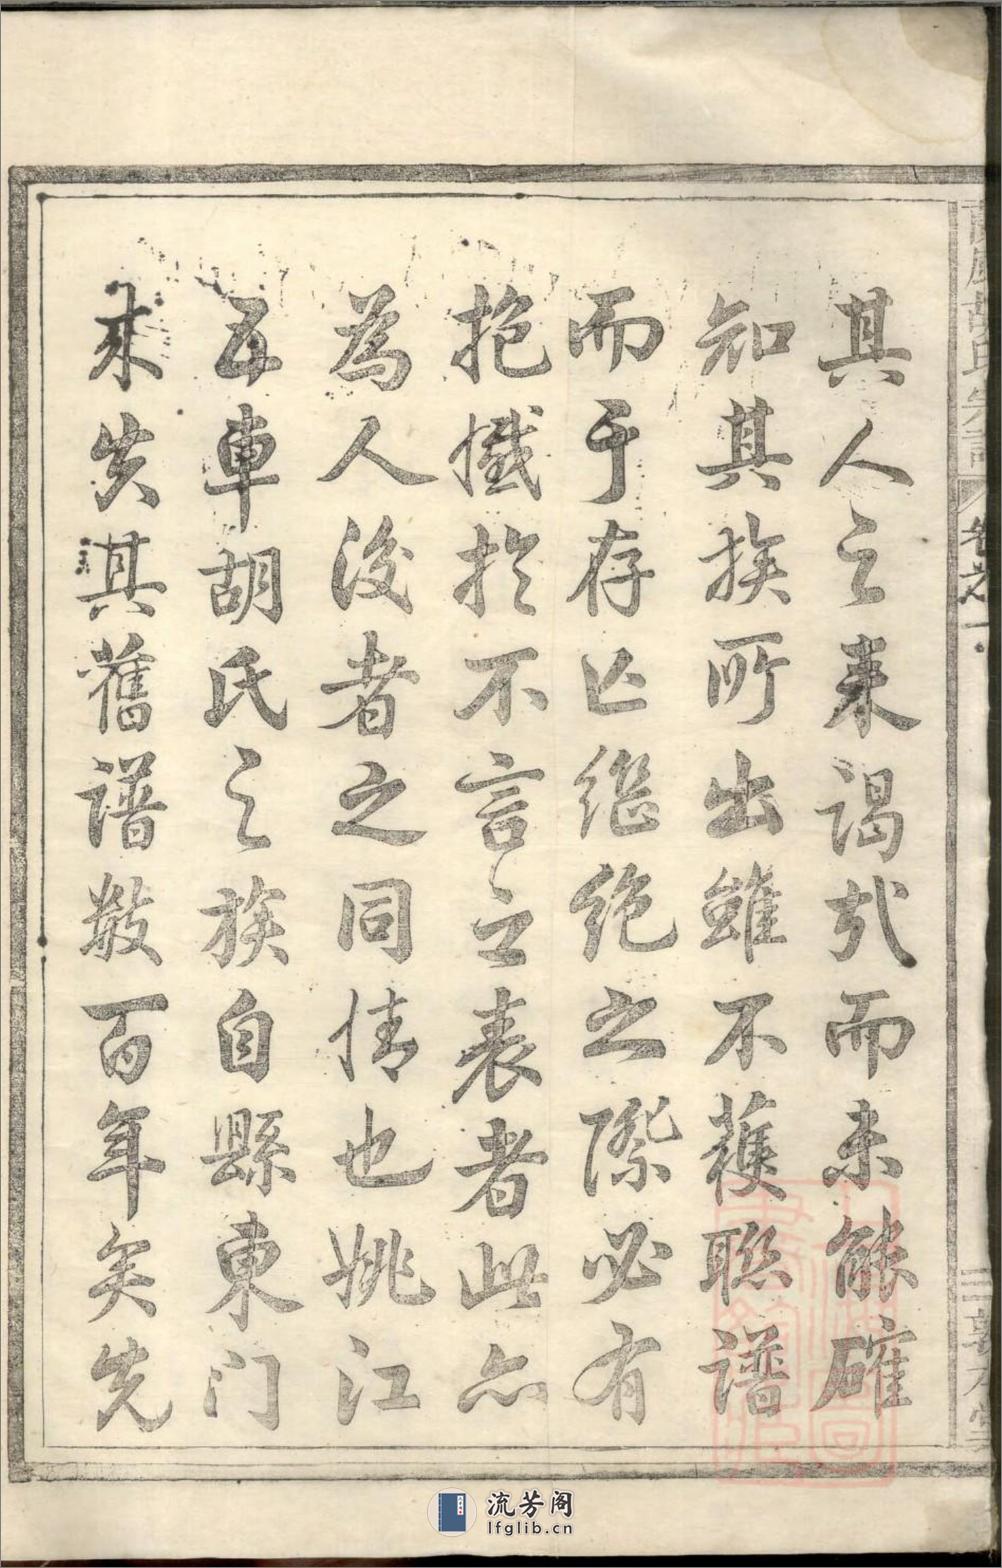 蘭風胡氏宗譜 卷之一 二 敦本堂
其人之来謁而未能確
知其族所出雖不獲聯譜
而于存亡継絶之際必有
抱憾於不言之表者此亦
為人後者之同情也姚江
五車胡氏之族自縣東门
来失其舊譜数百年矣先
流芳阁
lfglib.cn